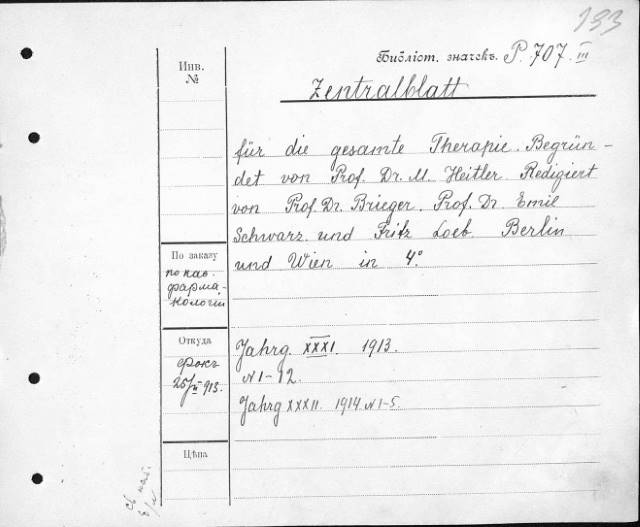 133
Библіот. значекъ. P. 707. III
Инв.
№
Zentralblatt
für die gesamte Therapie. Begrün-
det von Prof. Dr. M. Heitler. Redigiert
von Prof. Dr. Brieger. Prof. Dr. Emil
Schwarz und Fritz Loeb. Berlin
und Wien in 4°.
По заказу
по каѳ.
фарма-
кологіи
Откуда
Фокъ
Jahrg. XXXI. 1913.
N 1-12.
Jahrg XXXII. 1914. N 1-5.
Цѣна